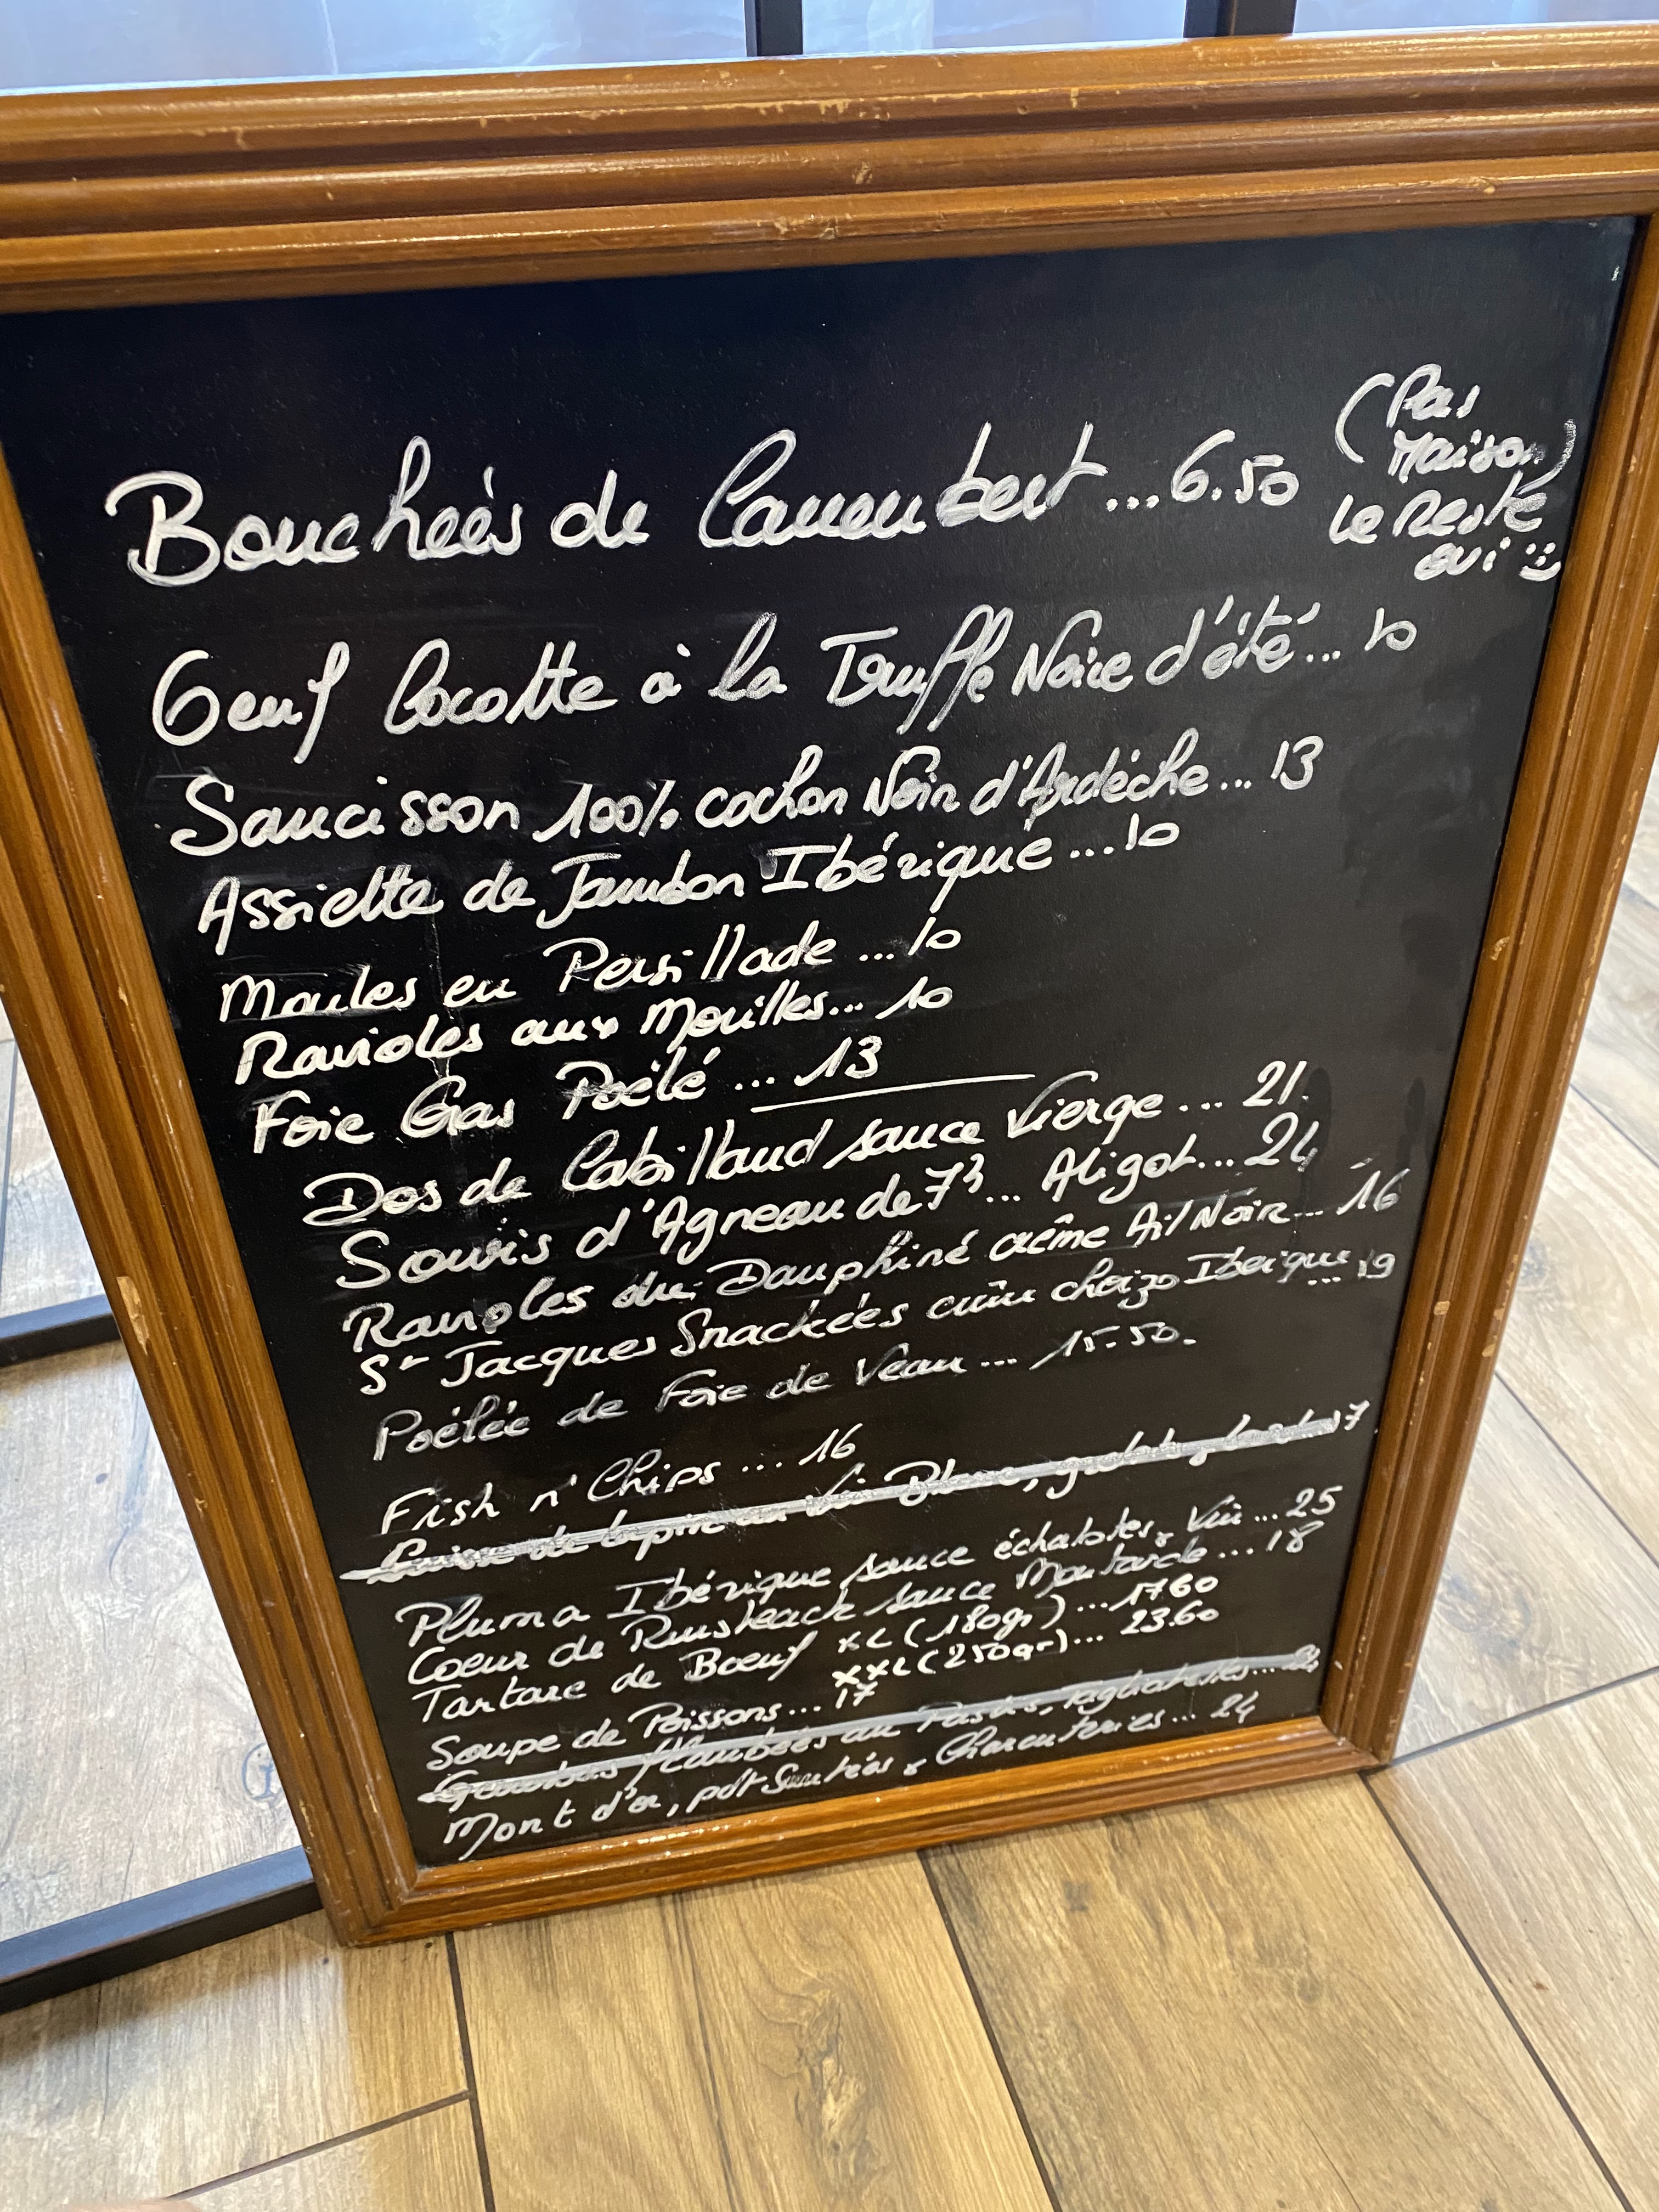 Bouchées de Camembert ... 6.50
(Pas
Maison)
le Reste
oui
Oeuf Cocotte à la Truffe Noire d'été ... 10
Saucisson 100% cochon Noir d'Ardèche ... 13
Assiette de Jambon Ibérique ... 10
Moules en Persillade ... 10
Ravioles aux Morilles ... 10
Foie Gras Poêlé ... 13
Dos de Cabillaud sauce Vierge ... 21.
Souris d'Agneau de 7h ... Aligot ... 24
Ravioles du Dauphiné crème Ail Noir ... 16
St Jacques Snackées chorizo Ibérique ... 19
Poêlée de Foie de Veau ... 15.50.
Fish n' Chips ... 16
Cuisse de lapin au Vin Blanc, 17
Pluma Ibérique sauce échalotes, Vin ... 25
Coeur de Rumsteack sauce Moutarde ... 18
Tartare de Boeuf XL (180gr) ... 17.60
XXL (250gr) ... 23.60
Soupe de Poissons ... 17
Gambas flambées au Pastis, Tagliatelles ...
Mont d'or, pdt Sautées & Charcuteries ... 24